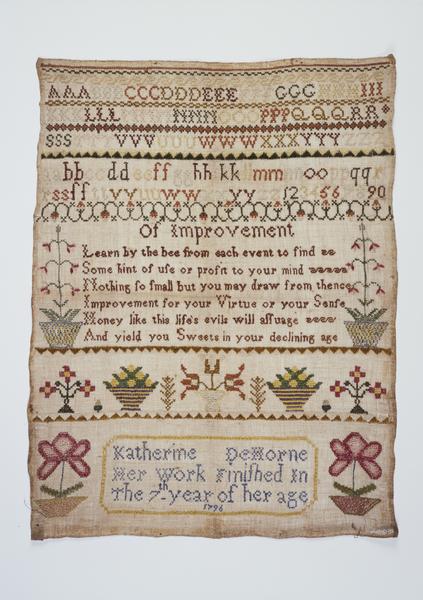 AAA CCCDDDEEE GGG III
LLL NNNN OOO PPPQQQRR
SSS VVV UUU WWWXXXYYY
bb dd eeff gghhkk mm oo qq
ssff yy ww yy 123456 90
Of Improvement
Learn by the bee from each event to find
Some hint of use or profit to your mind
Nothing so small but you may draw from thence
Improvement for your Virtue or your Sense
Honey like this life's evils will assuage
And yield you Sweets in your declining age
Katherine DeHorne
Her Work Finished In
The 7th year of her age
1796